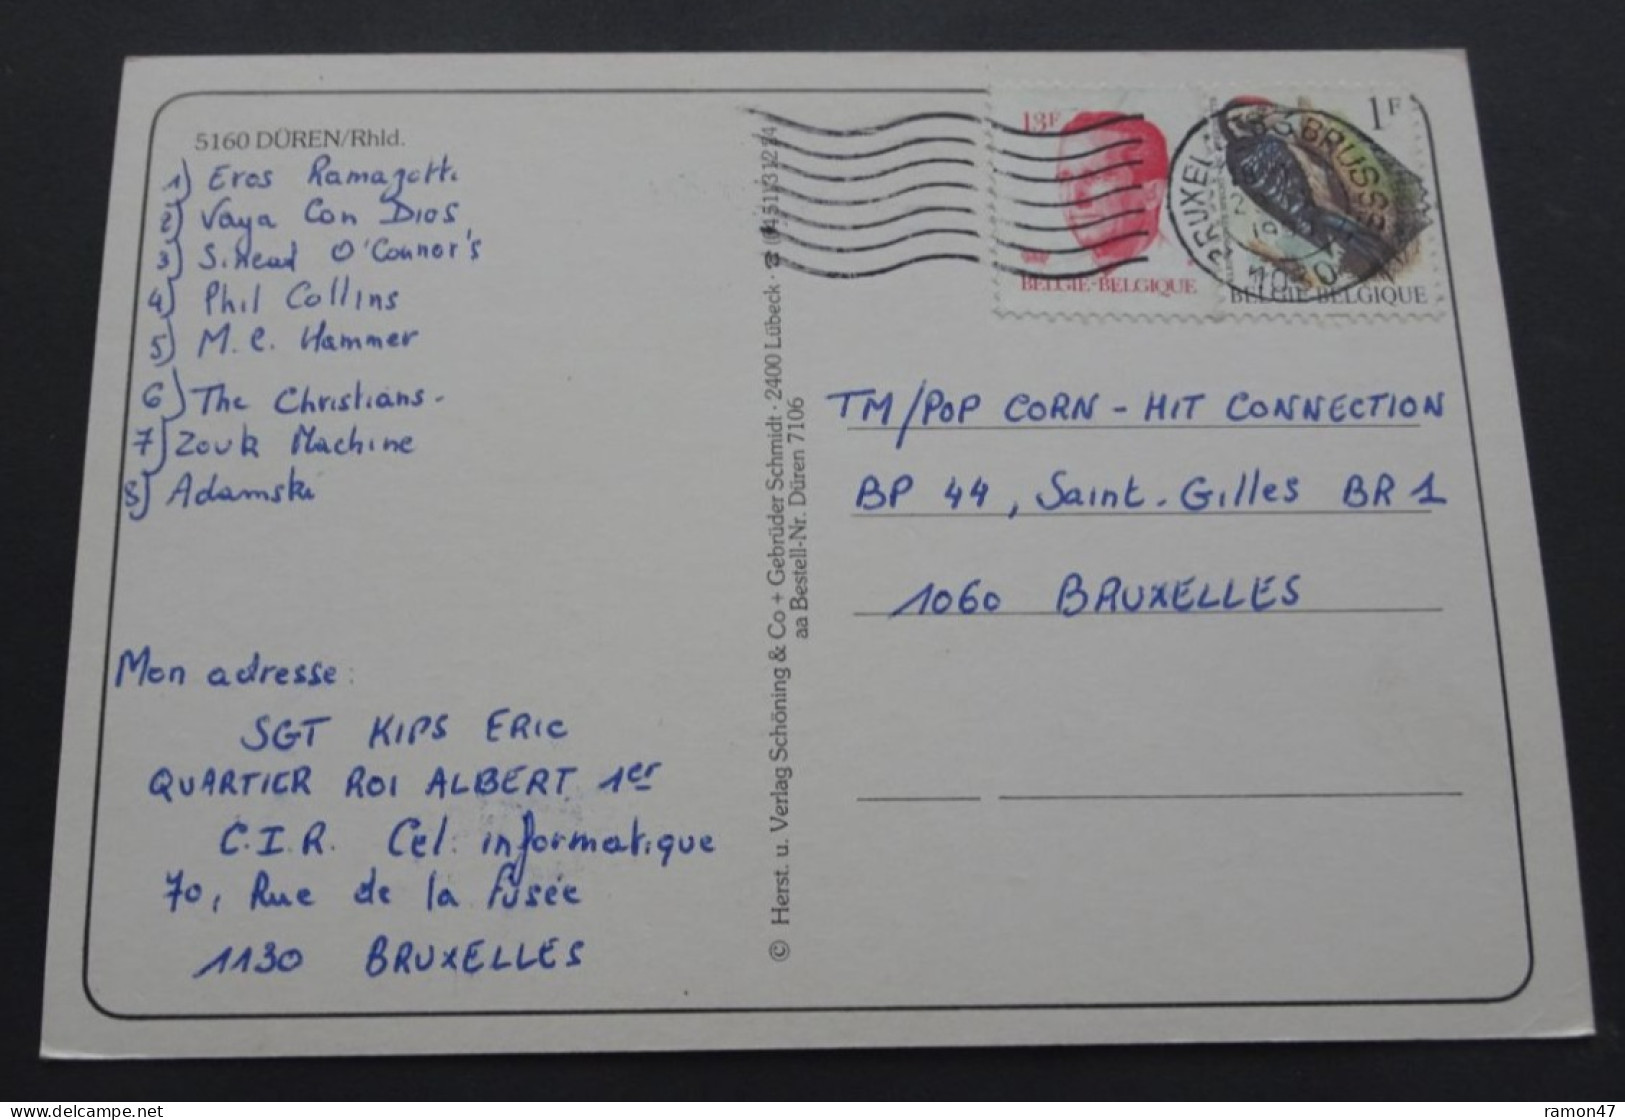 5160 DÜREN/Rhld.
1) Eros Ramazotti
2) Vaya Con Dios
3) Sinead O'Connor's
4) Phil Collins
5) M.C. Hammer
6) The Christians.
7) Zouk Machine
8) Adamski
Mon adresse:
SGT KIPS ERIC
QUARTIER ROI ALBERT 1er
C.I.R. Cel. informatique
70, Rue de la fusée
1130 BRUXELLES
© Herst. u. Verlag Schöning & Co + Gebrüder Schmidt · 2400 Lübeck · ☎ (0451) 31224
aa Bestell-Nr. Düren 7106
13F
BELGIE-BELGIQUE
1F
BELGIE-BELGIQUE
BRUXELLES BRUSSEL
TM/POP CORN - HIT CONNECTION
BP 44, Saint-Gilles BR 1
1060 BRUXELLES
ramon47